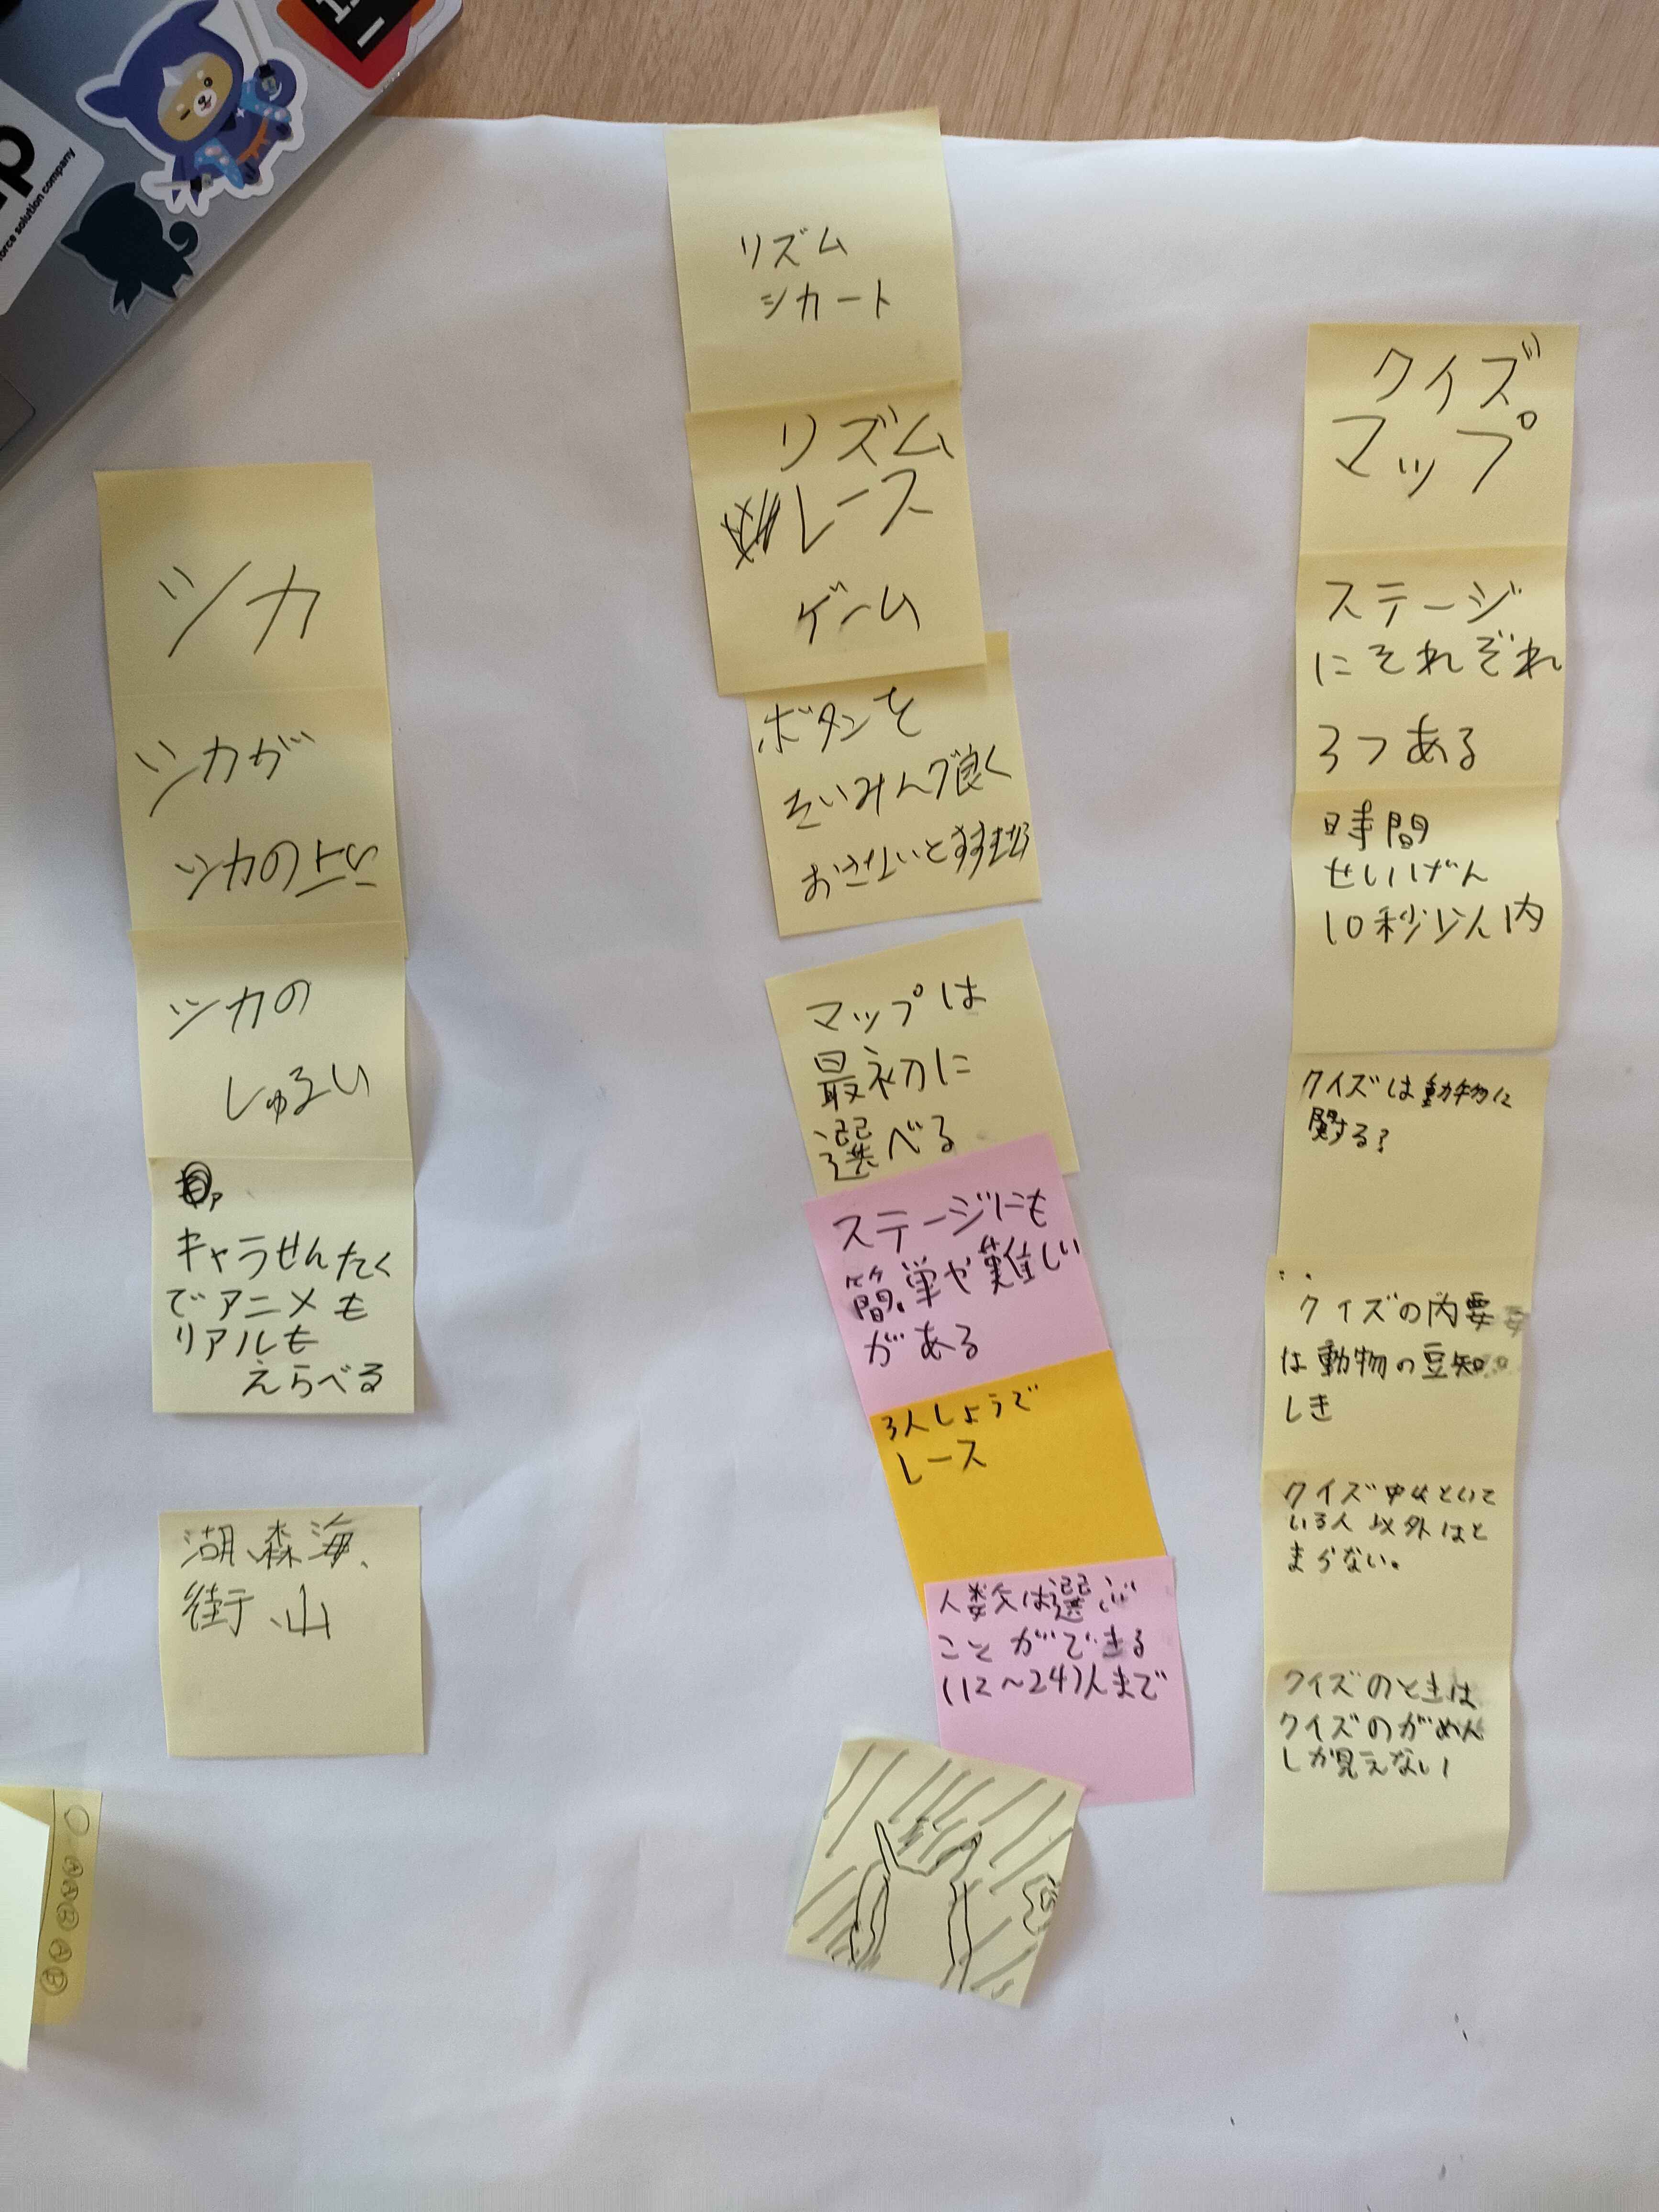 force solution company
シカ
シカが
シカの上に
シカの
しゅるい
キャラせんたく
でアニメも
リアルも
えらべる
湖、森、海、
街、山
リズム
シカート
リズム
レース
ゲーム
ボタンを
たいみんぐ良く
おさないと
マップは
最初に
選べる
ステージにも
簡単や難しい
がある
3人しょうで
レース
人数は選ぶ
ことができる
(12～24)人まで
クイズ
マップ
ステージ
にそれぞれ
3つある
時間
せいげん
10秒以内
クイズは動物に
関する?
クイズの内要
は動物の豆知
しき
クイズ中はといて
いる人以外はと
まらない。
クイズのときは
クイズのがめん
しか見えない